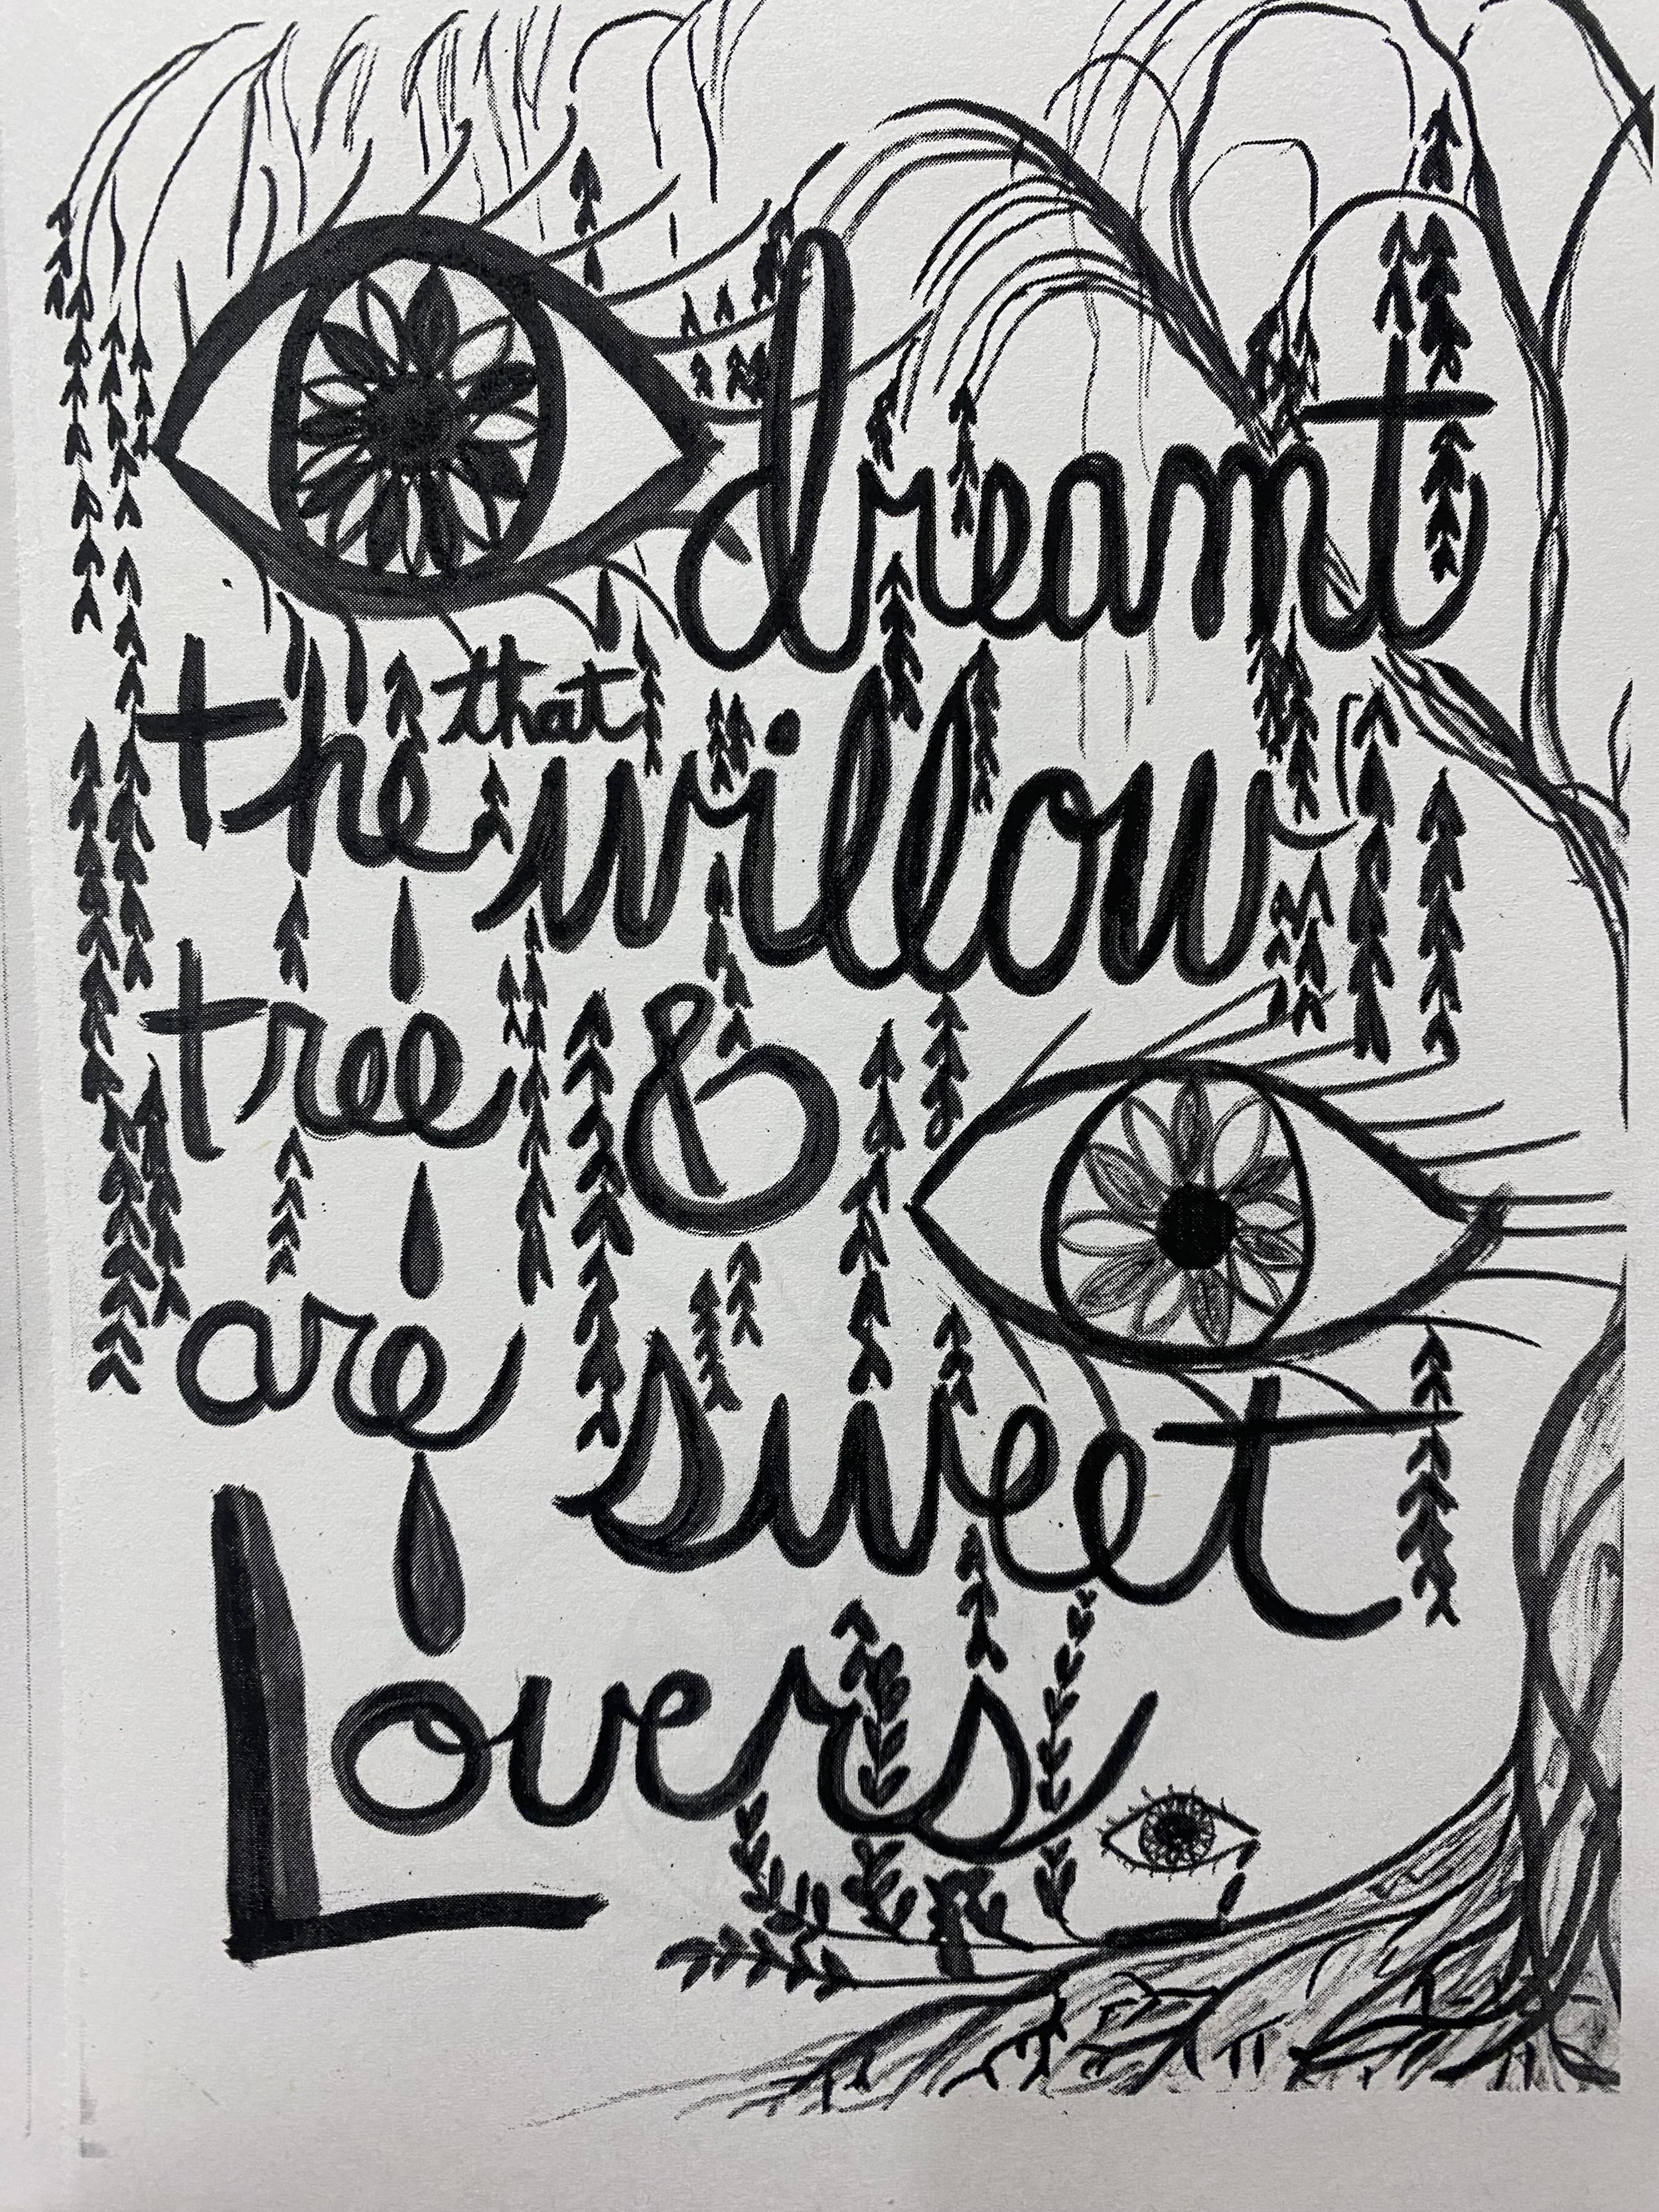 dreamt
that
the willow
tree &
are sweet
Lovers